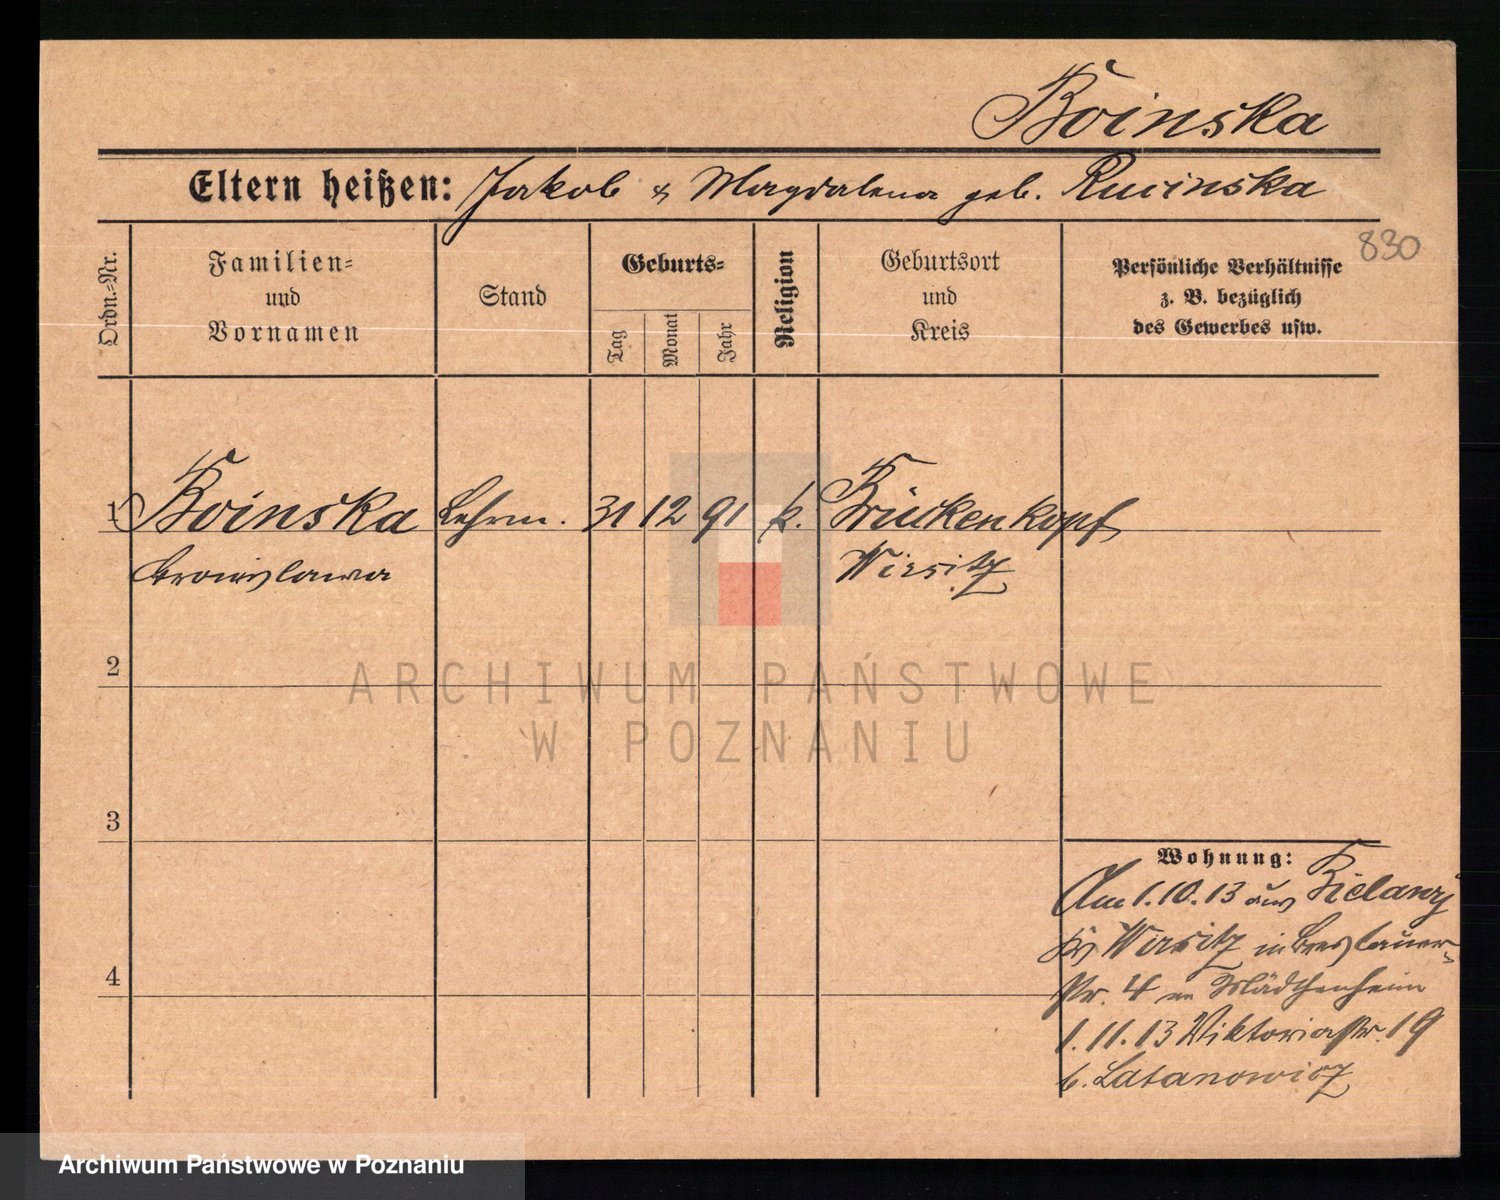 Boinska
Eltern heißen: Jakob & Magdalena geb. Rucinska
830
Ordn.=Nr.
Familien=
und
Vornamen
Stand
Geburts=
Tag
Monat
Jahr
Religion
Geburtsort
und
Kreis
Persönliche Verhältnisse
z. B. bezüglich
des Gewerbes usw.
1 Boinska Lehrin. 31 12 91 k. Brückenkopf
Bronislawa Wirsitz
2
ARCHIWUM PAŃSTWOWE
W POZNANIU
3
Wohnung:
Am 1.10.13 aus Bielawy
Krs Wirsitz in Breslauer=
str. 4 Mädchenheim
1.11.13 Viktoriastr. 19
b. Latanowicz
4
Archiwum Państwowe w Poznaniu